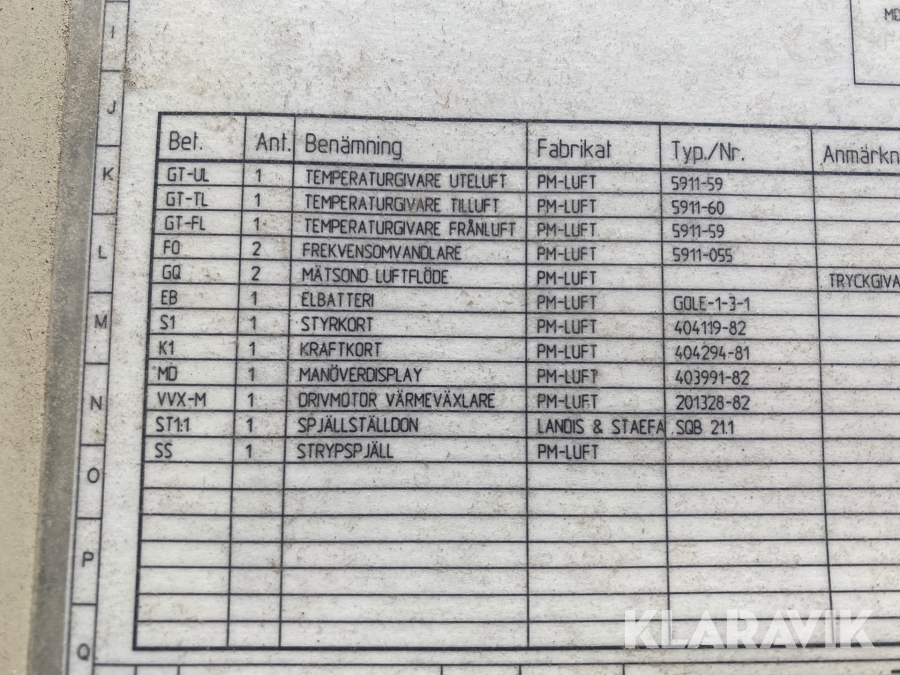 I
J
K
L
M
N
O
P
Q
Bet. Ant. Benämning Fabrikat Typ./Nr.
GT-UL 1 TEMPERATURGIVARE UTELUFT PM-LUFT 5911-59
GT-TL 1 TEMPERATURGIVARE TILLUFT PM-LUFT 5911-60
GT-FL 1 TEMPERATURGIVARE FRÅNLUFT PM-LUFT 5911-59
FO 2 FREKVENSOMVANDLARE PM-LUFT 5911-055
GQ 2 MÄTSOND LUFTFLÖDE PM-LUFT
EB 1 ELBATTERI PM-LUFT GOLE-1-3-1
S1 1 STYRKORT PM-LUFT 404119-82
K1 1 KRAFTKORT PM-LUFT 404294-81
MD 1 MANÖVERDISPLAY PM-LUFT 403991-82
VVX-M 1 DRIVMOTOR VÄRMEVÄXLARE PM-LUFT 201328-82
ST1:1 1 SPJÄLLSTÄLLDON LANDIS & STAEFA SQB 21.1
SS 1 STRYPSPJÄLL PM-LUFT
KLARAVIK